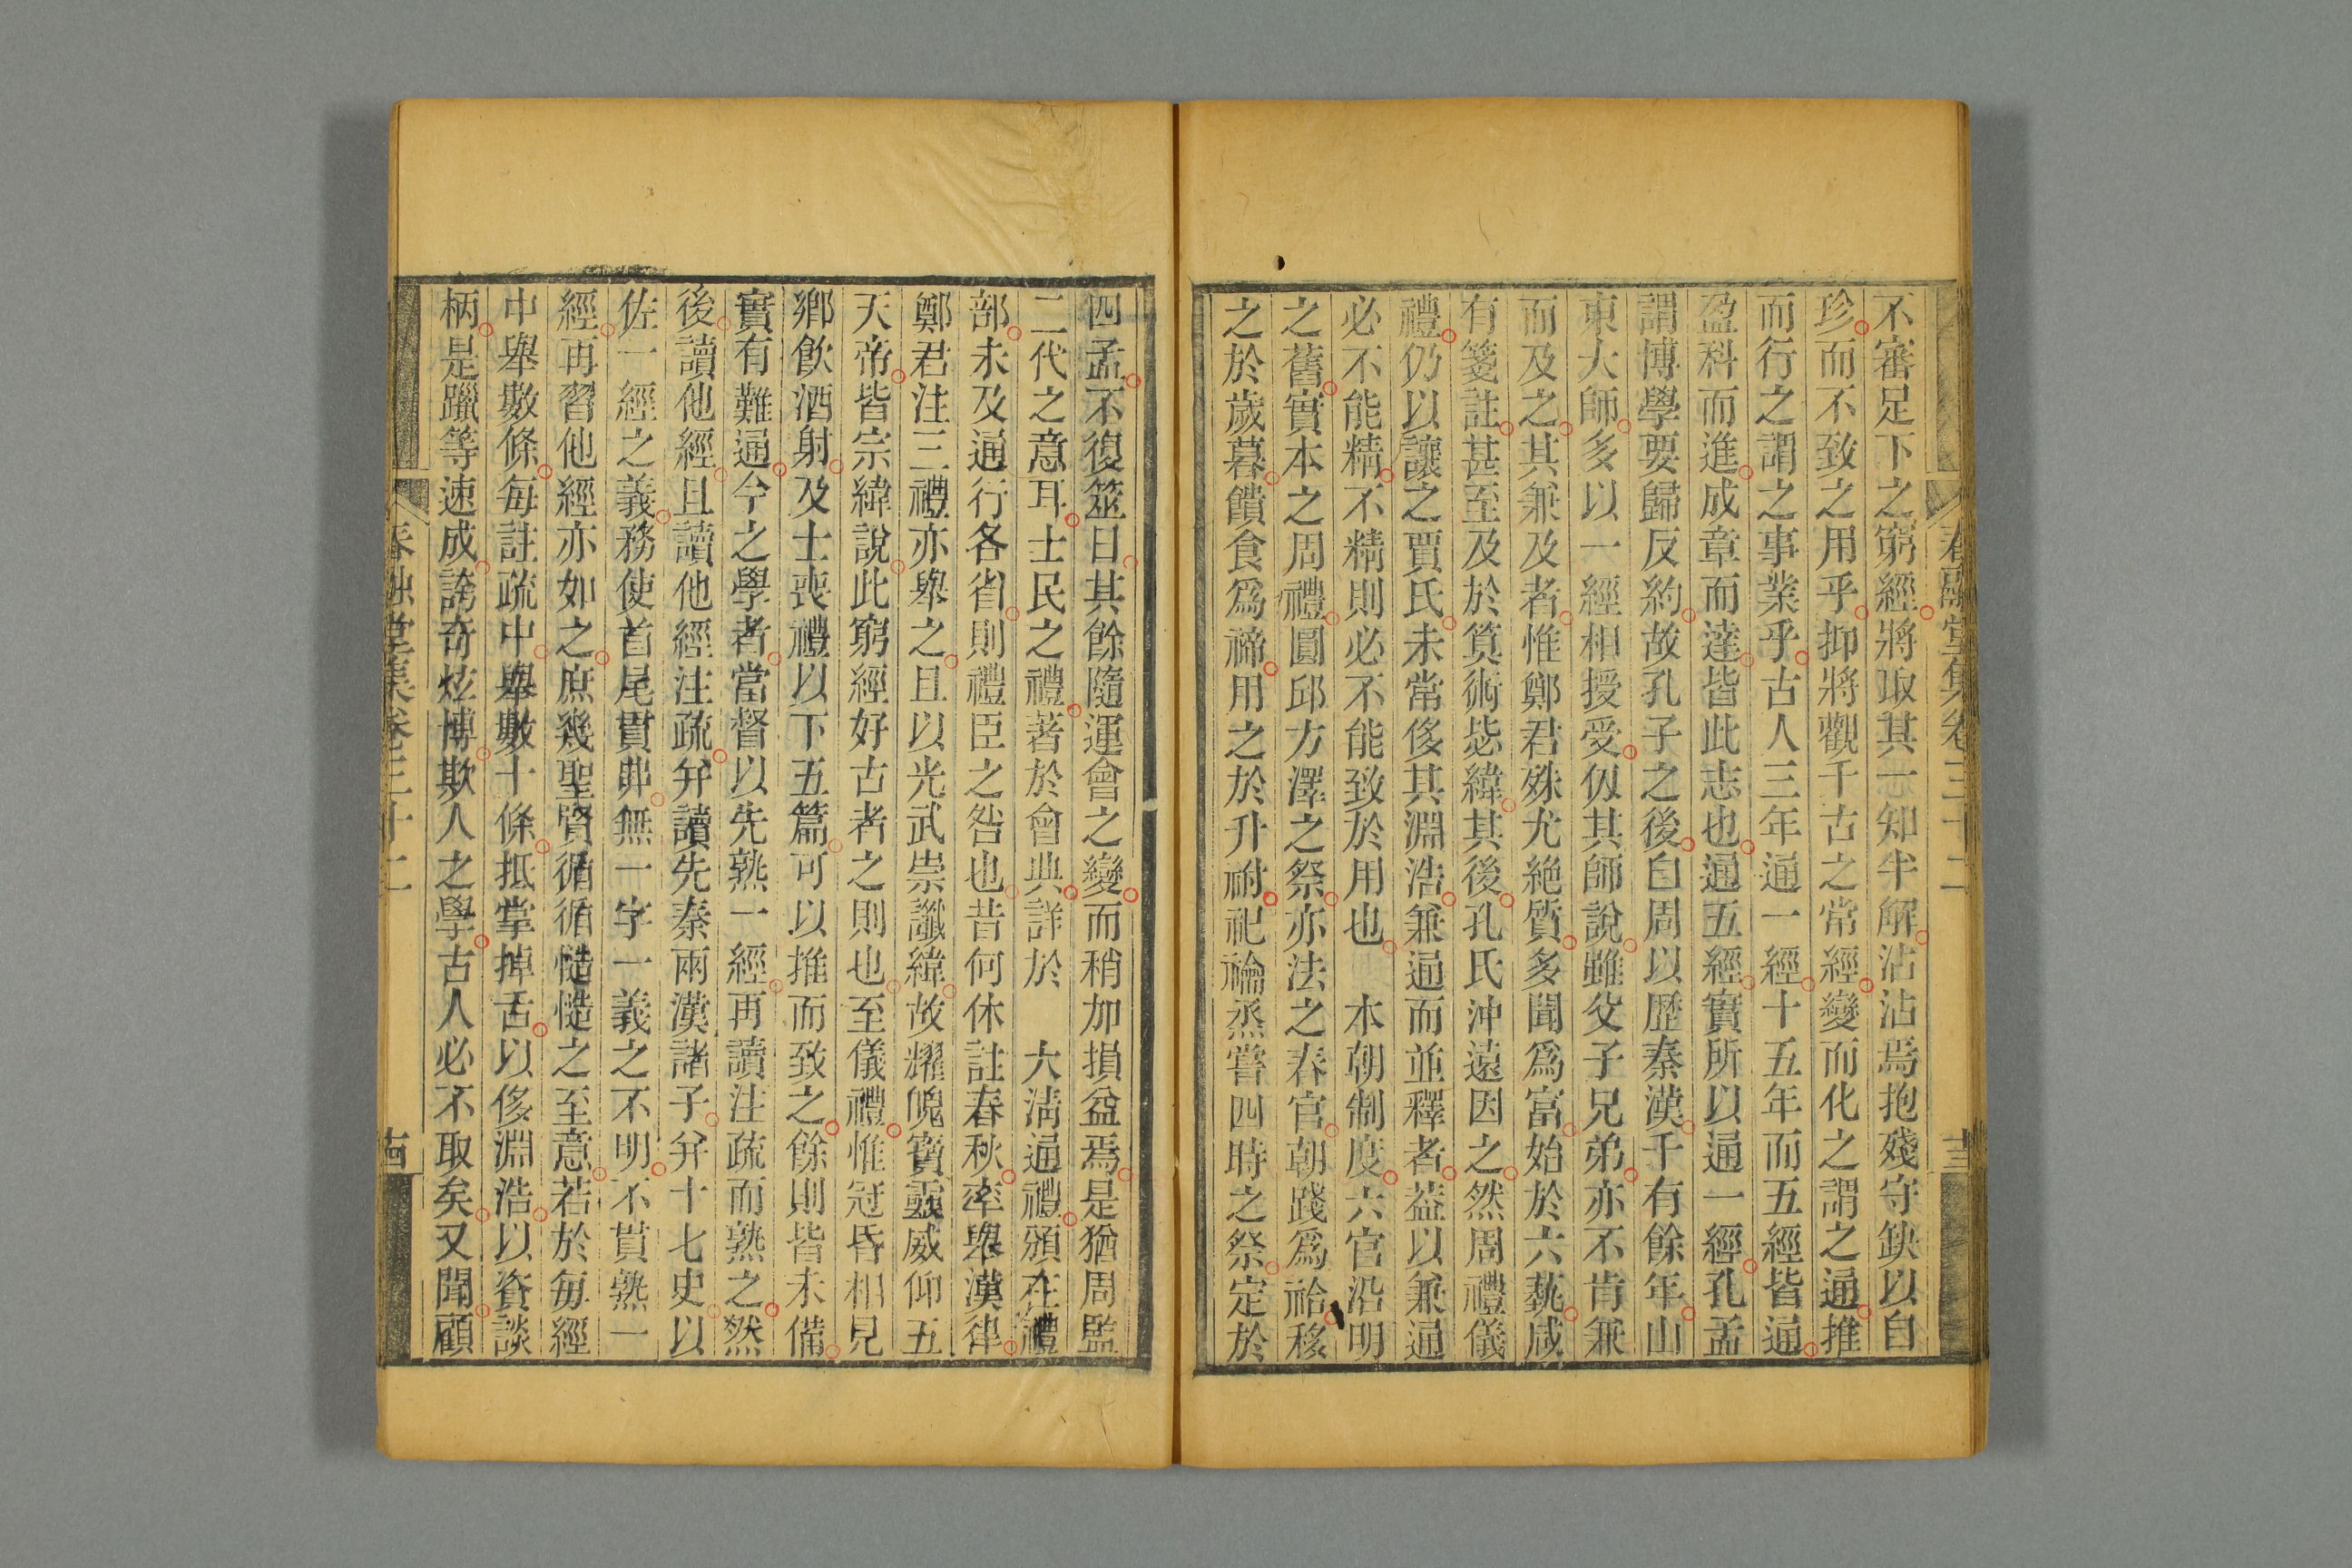 不審足下之窮經將取其一知半解沾沾焉抱殘守缺以自
珍而不致之用乎抑將觀千古之常經變而化之謂之通推
而行之謂之事業乎古人三年通一經十五年而五經皆通
盈科而進成章而達皆此志也通五經實所以通一經孔孟
謂博學要歸反約故孔子之後自周以歷秦漢千有餘年山
東大師多以一經相授受仞其師說雖父子兄弟亦不肯兼
而及之其兼及者惟鄭君殊尤絶質多聞爲富始於六藝咸
有箋註甚至及於筭術毖緯其後孔氏沖遠因之然周禮儀
禮仍以讓之賈氏未嘗侈其淵浩兼通而並釋者葢以兼通
必不能精不精則必不能致於用也 本朝制度六官沿明
之舊實本之周禮圜邱方澤之祭亦法之春官朝踐爲祫移
之於歲暮饋食爲禘用之於升祔祀禴烝嘗四時之祭定於
春融堂集卷三十二
十三
四孟不復筮日其餘隨運會之變而稍加損益焉是猶周監
二代之意耳士民之禮著於會典詳於 大淸通禮頒在禮
部未及通行各省則禮臣之咎也昔何休註春秋率舉漢律
鄭君注三禮亦舉之且以光武崇讖緯故耀魄寶靈威仰五
天帝皆宗緯說此窮經好古者之則也至儀禮惟冠昏相見
鄉飮酒射及士喪禮以下五篇可以推而致之餘則皆未備
實有難通今之學者當督以先熟一經再讀注疏而熟之然
後讀他經且讀他經注疏弁讀先秦兩漢諸子弁十七史以
佐一經之義務使首尾貫弗無一字一義之不明不貫熟一
經再習他經亦如之庶幾聖賢循循慥慥之至意若於每經
中舉數條每註疏中舉數十條抵掌掉舌以侈淵浩以資談
柄是躐等速成誇奇炫博欺人之學古人必不取矣又聞顧
春融堂集卷三十二
十四